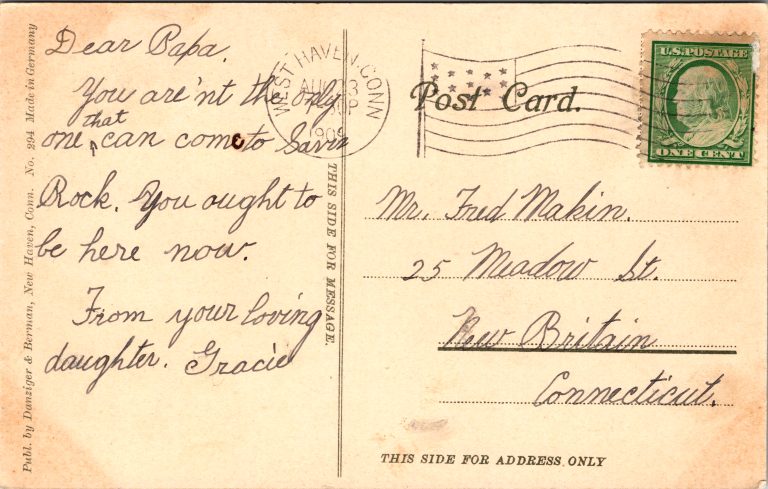 Dear Papa.
You are'nt the only
one that can come to Savin
Rock. You ought to
be here now.
From your loving
daughter. Gracie
Publ. by Danziger & Berman, New Haven, Conn. No. 294 Made in Germany
THIS SIDE FOR MESSAGE.
WEST HAVEN, CONN
AUG 23
1909
Post Card.
U.S. POSTAGE
ONE CENT
Mr. Fred Makin.
25 Meadow St.
New Britain
Connecticut.
THIS SIDE FOR ADDRESS ONLY